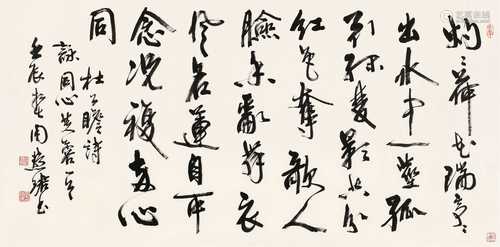 灼〻荷花瑞亭〻
出水中一莖孤
引綠雙影共分
紅色奪歌人
臉香亂舞衣
風名蓮自可
念況複兩心
同
杜公瞻詩
詠同心芙蓉
壬辰周慧珺書